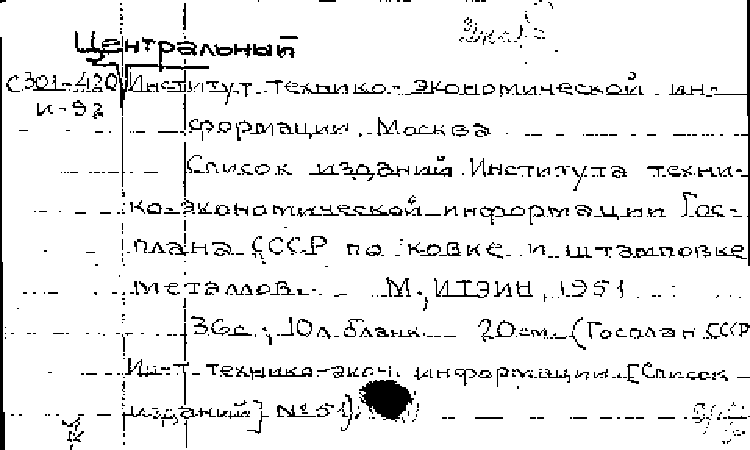 Центральный
С301-420 Институт технико-экономической ин-
И-92
формации, Москва
Список изданий Института техни-
ко-экономической информации Гос-
плана СССР по ковке и штамповке
металлов. М., ИТЭИН, 1951
36с.; 10л. бланк. 20см. (Госплан СССР
Ин-т технико-экон. информации. [Список
изданий] №51)